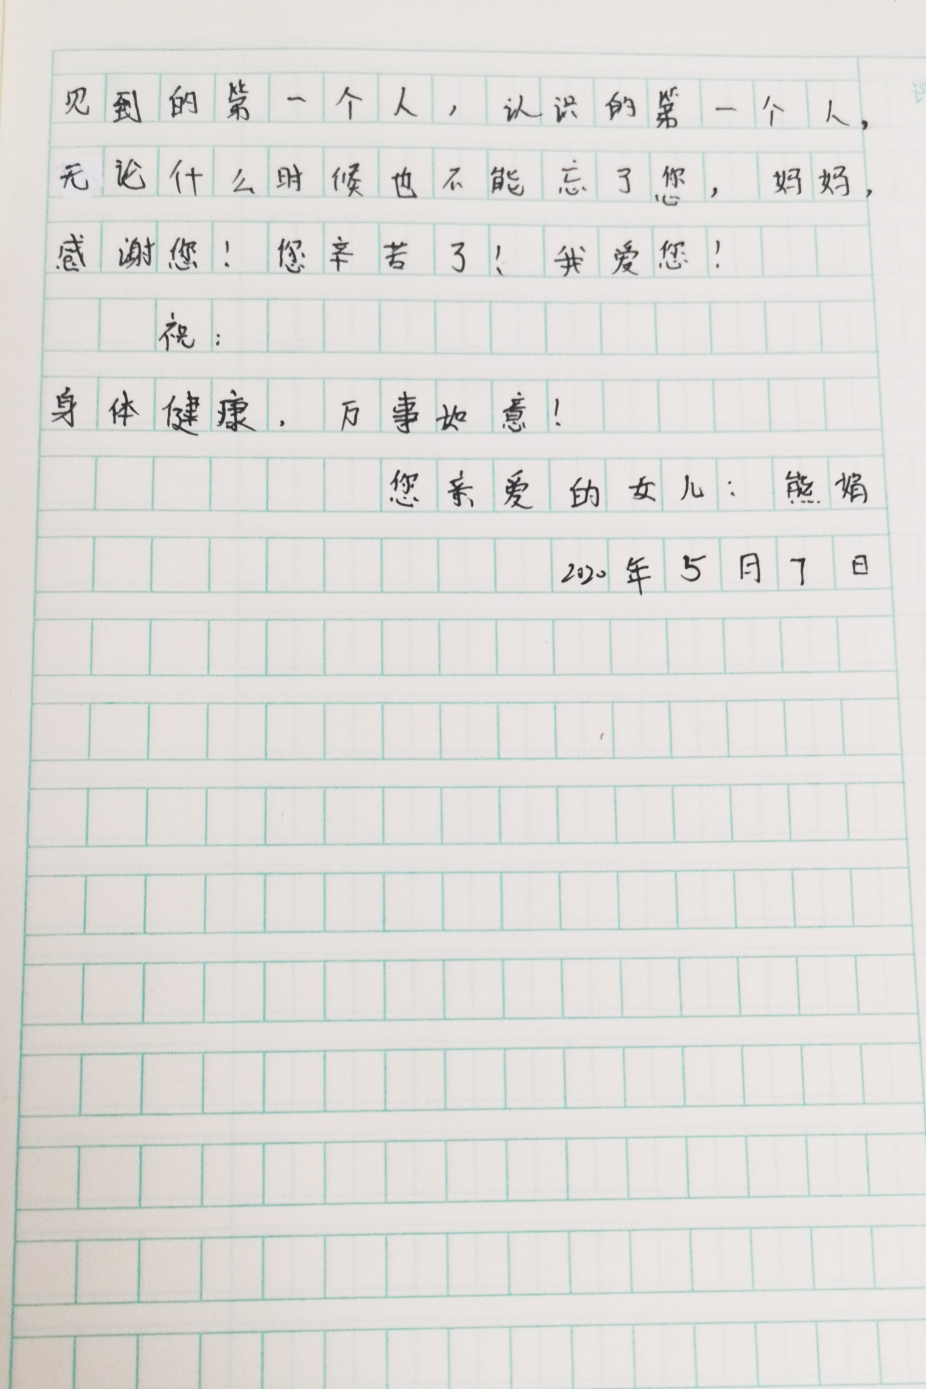 见到的第一个人，认识的第一个人，
无论什么时候也不能忘了您，妈妈，
感谢您！您辛苦了！我爱您！
祝：
身体健康，万事如意！
您亲爱的女儿：熊娟
2020年5月7日